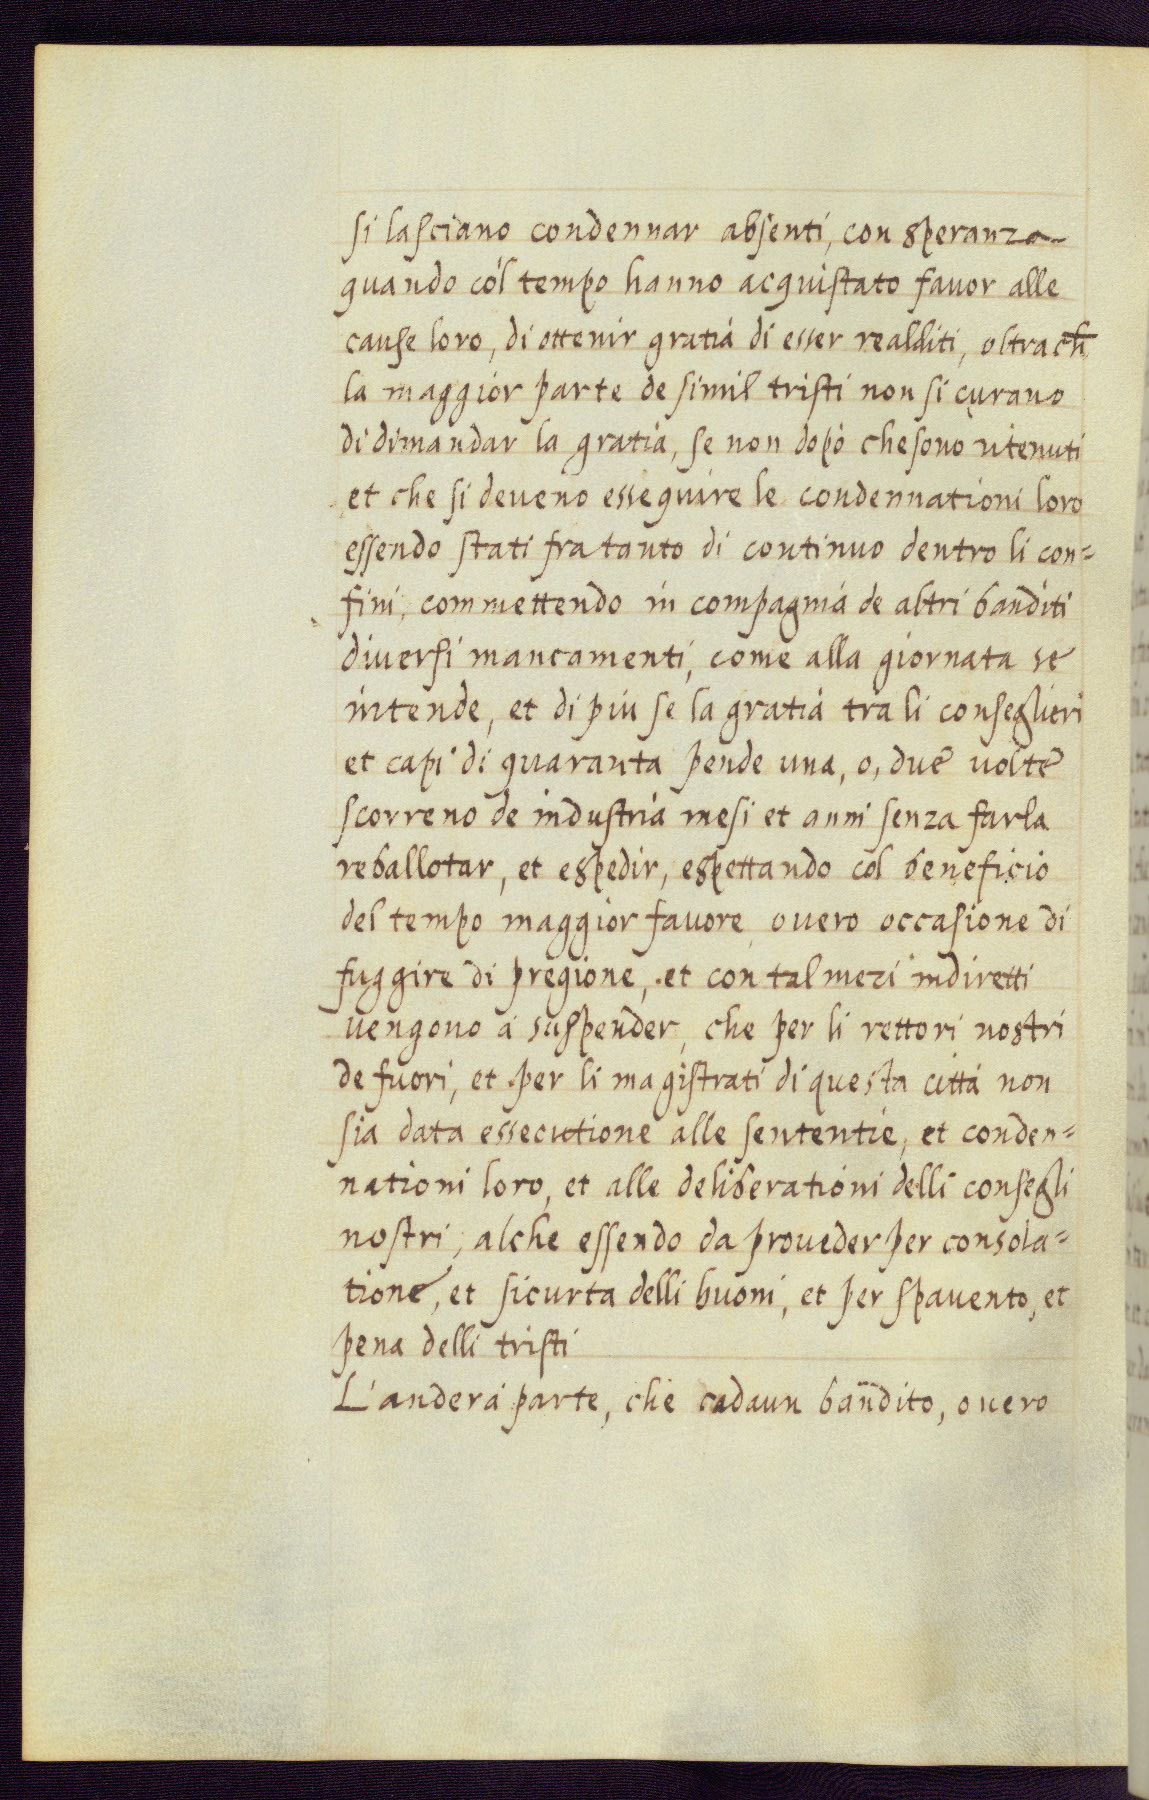 si lasciano condennar absenti, con speranza
quando cól tempo hanno acquistato favor alle
cause loro, di ottenir gratia di esser realditi, oltra ch̄
la maggior parte de simil tristi non si curano
di dimandar la gratia, se non dopò che sono ritenuti
et che si deveno essequire le condennationi loro
essendo stati fra tanto di continuo dentro li con=
fini, commettendo in compagnia de altri banditi
diversi mancamenti, come alla giornata se
intende, et di piu se la gratia tra li conseglieri
et capi di quaranta pende una, o, due volte
scorreno de industria mesi et anni senza farla
reballotar, et espedir, espettando cól beneficio
del tempo maggior favore, overo occasione di
fuggire di pregione, et con tal mezi indiretti
vengono á suspender, che per li rettori nostri
de fuori, et per li magistrati di questa cittá non
sia data essecutione alle sententie, et conden=
nationi loro, et alle deliberationi delli consegli
nostri, alche essendo da proveder per consola=
tione, et sicurta delli buoni, et per spavento, et
pena delli tristi
L'anderá parte, che cadaun bandito, overo